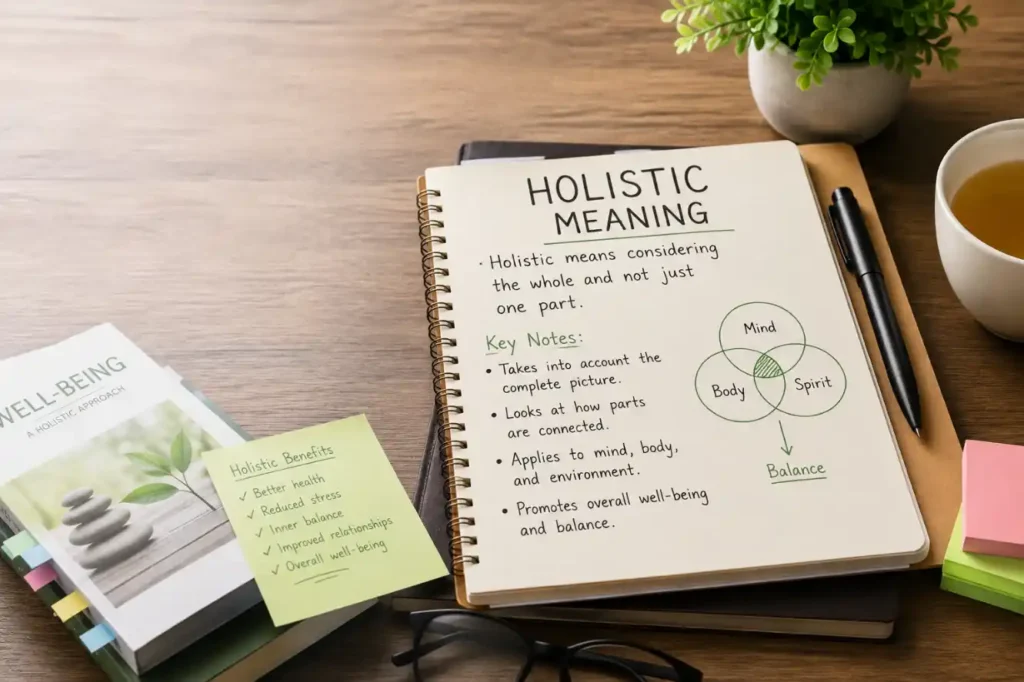 HOLISTIC
MEANING
· Holistic means considering
the whole and not just
one part.
Key Notes:
• Takes into account the
complete picture.
• Looks at how parts
are connected.
• Applies to mind, body,
and environment.
• Promotes overall well-being
and balance.
Mind
Body
Spirit
Balance
WELL-BEING
A HOLISTIC APPROACH
Holistic Benefits
✓ Better health
✓ Reduced stress
✓ Inner balance
✓ Improved relationships
✓ Overall well-being